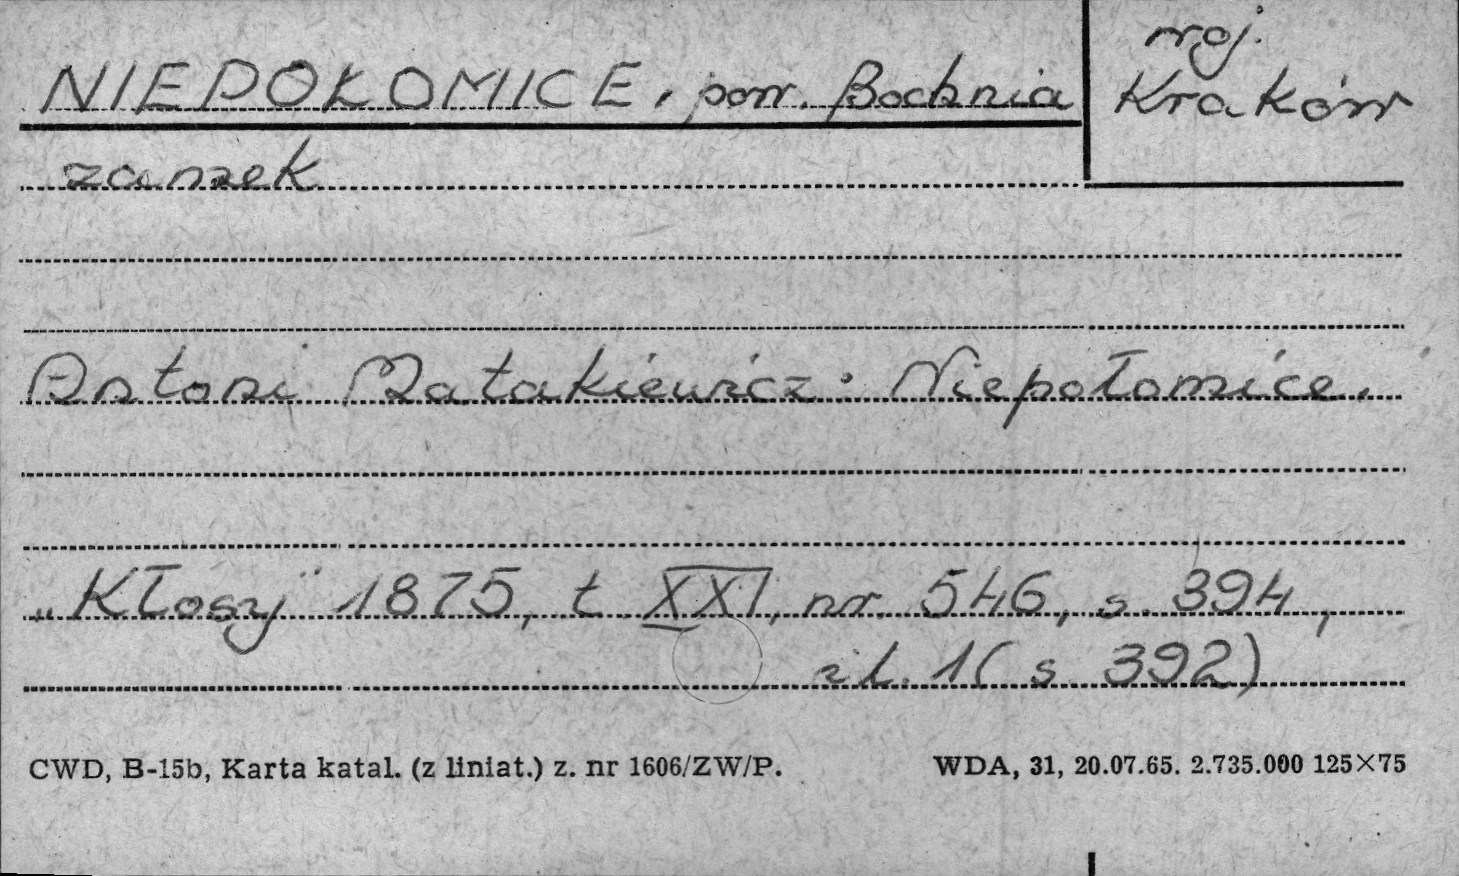 NIEPOŁOMICE, pow. Bochnia
woj.
Kraków
zamek
Antoni Matakiewicz: Niepołomice.
„Kłosy" 1875, t. XXI, nr. 546, s. 394,
il. 1 (s. 392)
CWD, B-15b, Karta katal. (z liniat.) z. nr 1606/ZW/P.
WDA, 31, 20.07.65. 2.735.000 125×75